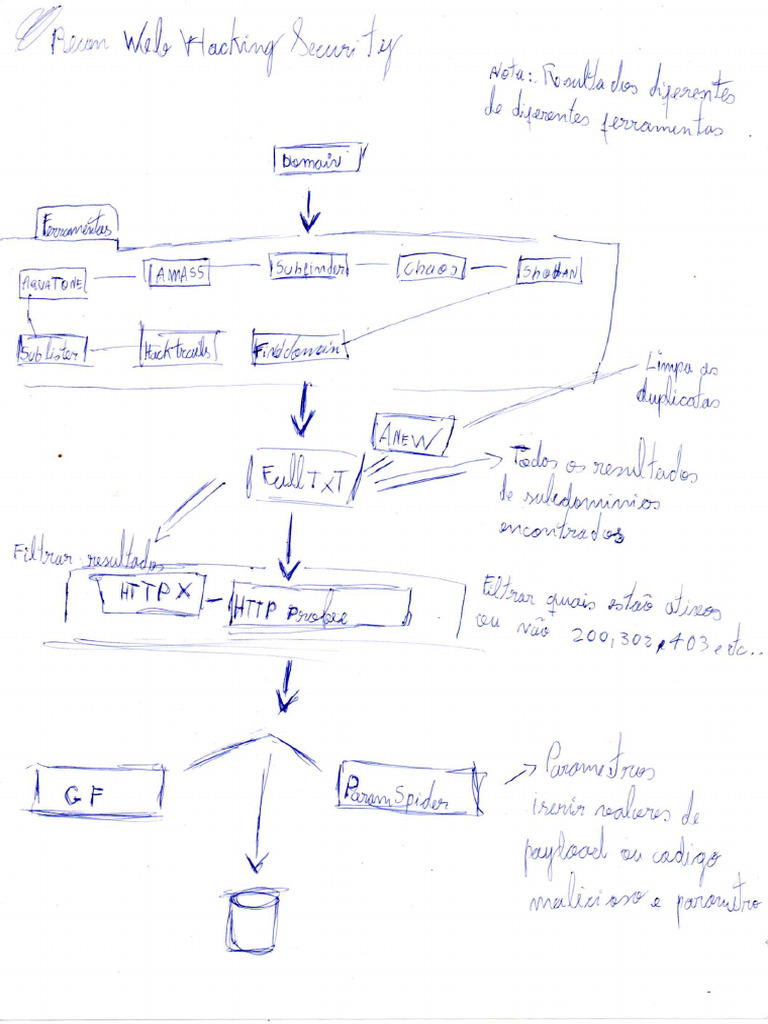 Recon Web Hacking Security
Nota: Resultados diferentes
de diferentes ferramentas
Domain
Ferramentas
AQUATONE
AMASS
Subfinder
Chaos
SHODAN
Sublister
Hacktrails
Finddomain
Limpa as
duplicatas
ANEW
Full TXT
Todos os resultados
de subdominios
encontrados
Filtrar resultados
HTTPX
HTTP Probe
Filtrar quais estão ativos
ou não 200, 302, 403 etc..
GF
ParamSpider
Parametros
valores de
payload ou codigo
malicioso e parametro